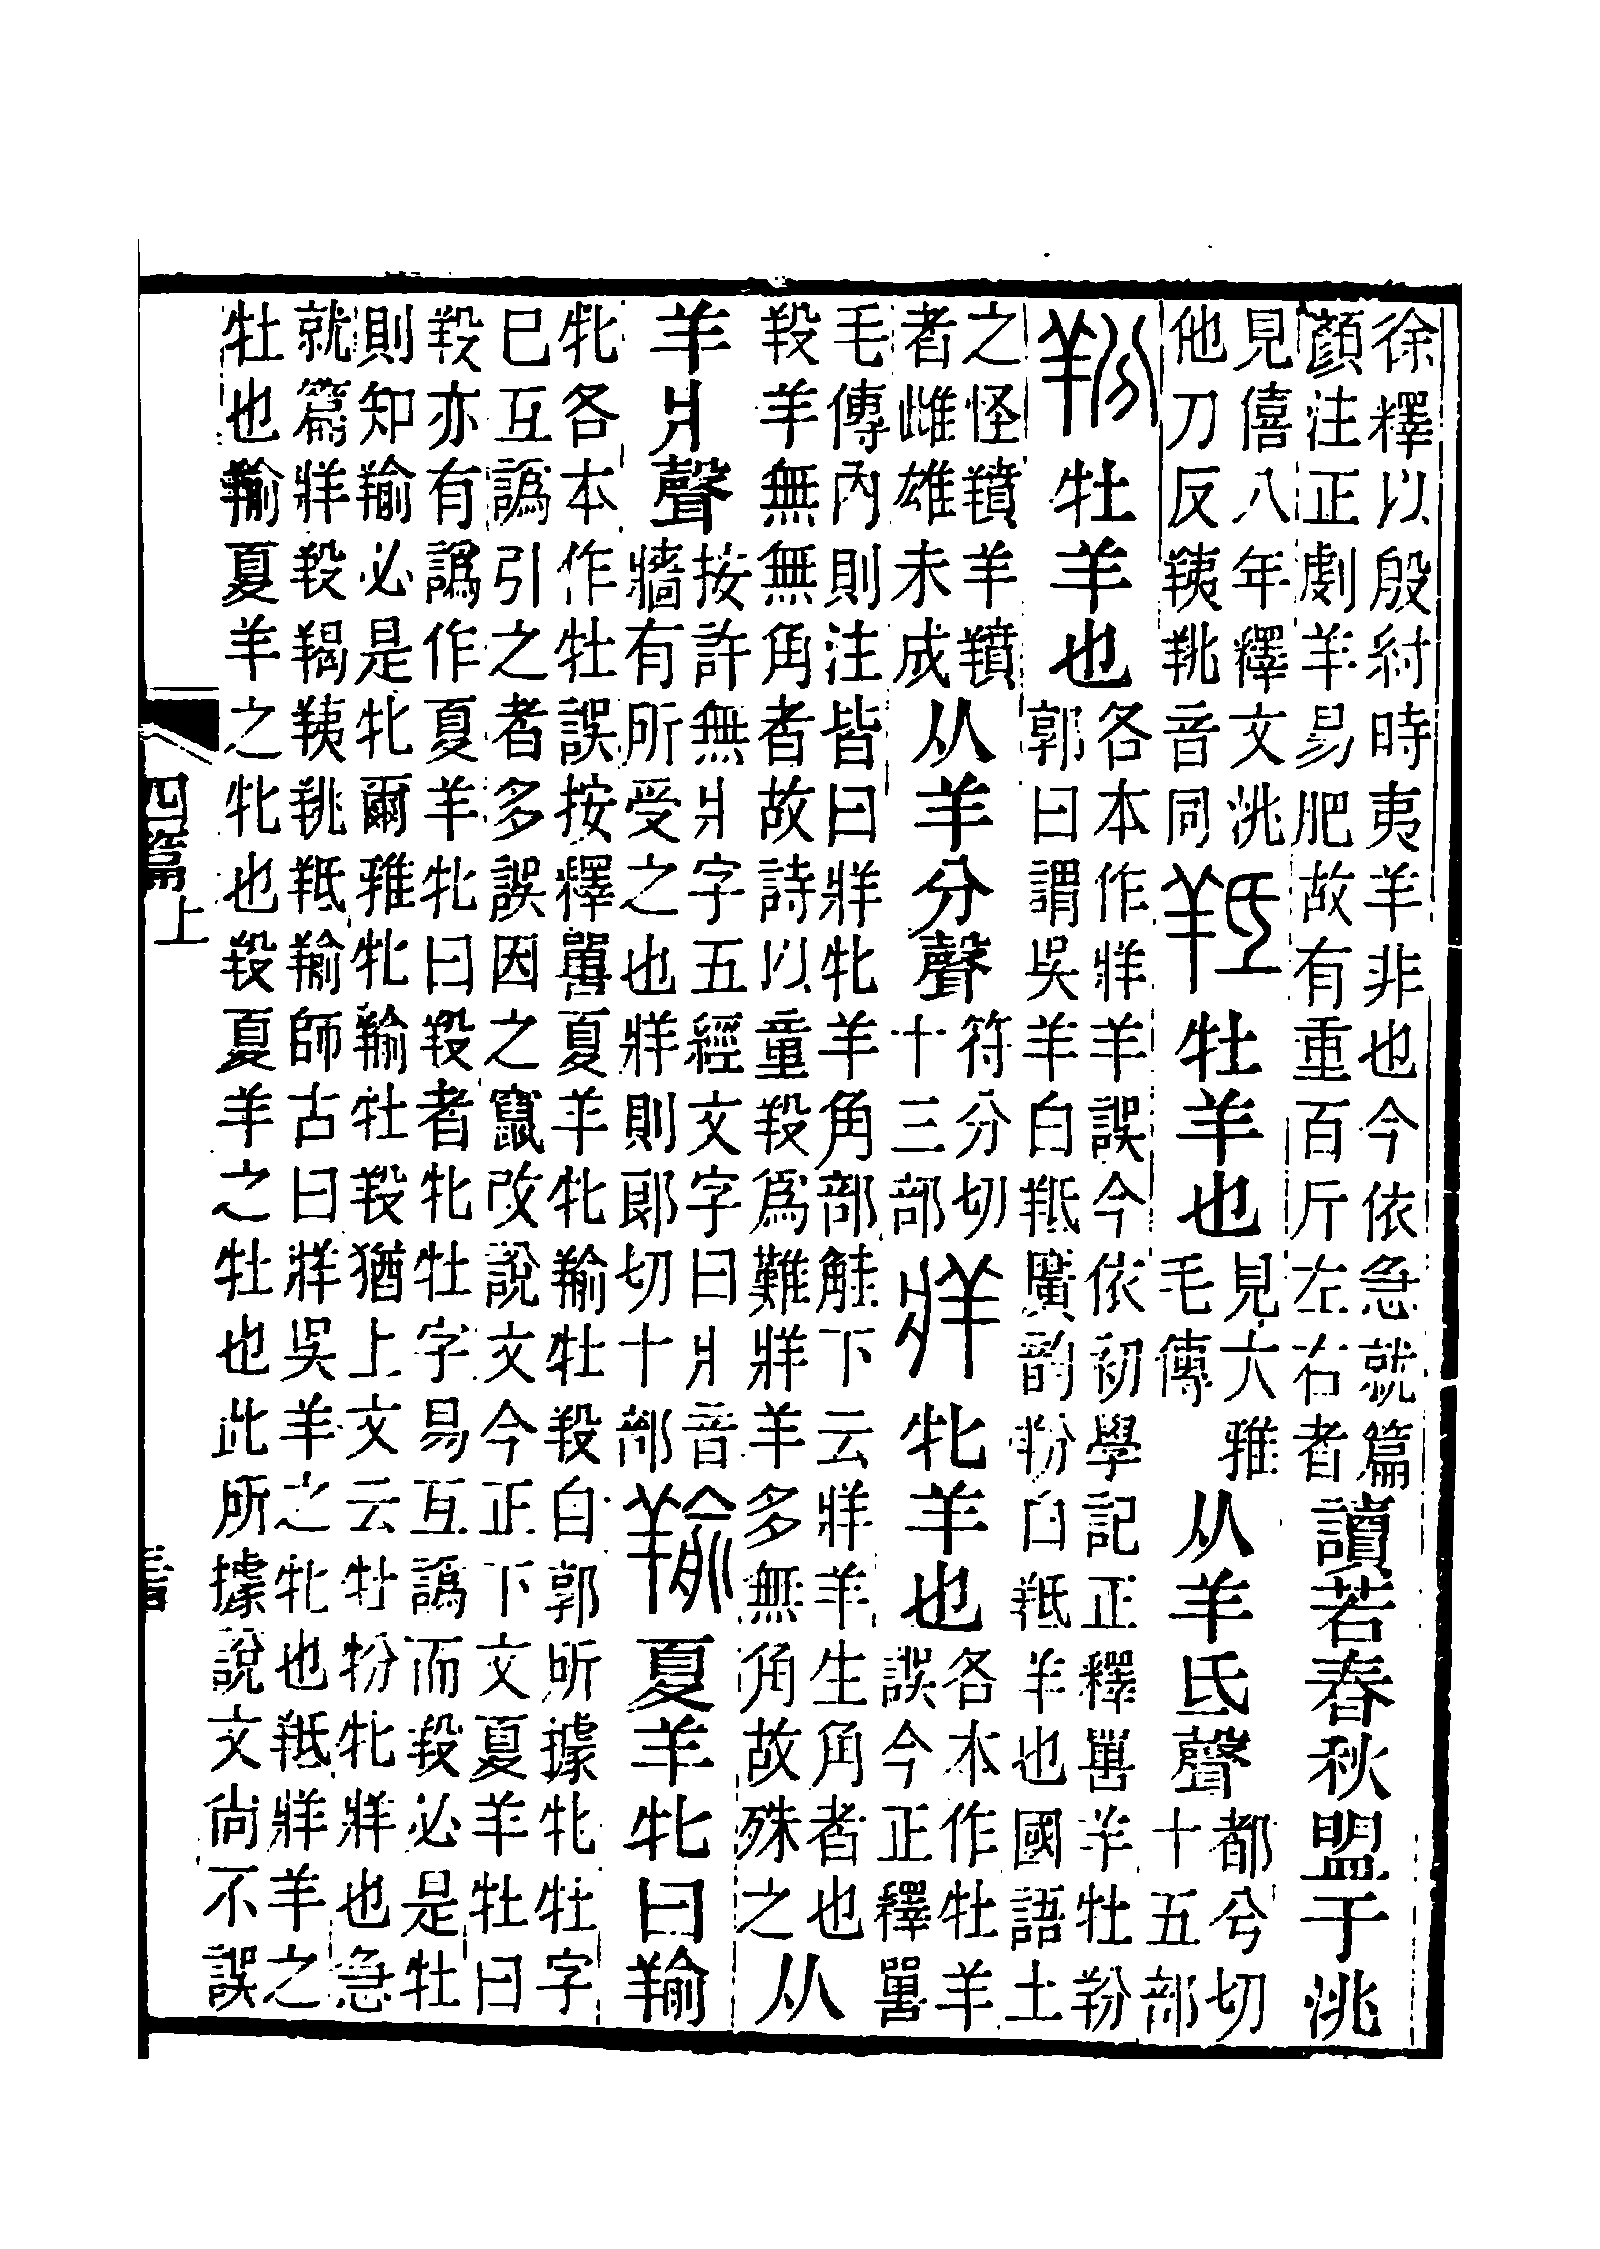 徐釋以殷紂時夷羊非也今依急就篇
顏注正劇羊易肥故有重百斤左右者
讀若春秋盟于洮
見僖八年釋文洮
他刀反羠䍮音同
羝牡羊也
見大雅
毛傳
从羊氐聲
都兮切
十五部
羒牡羊也
各本作牂羊誤今依初學記正釋嘼羊牡羒
郭曰謂吳羊白羝廣韵羒白羝羊也國語土
之怪羵羊羵
者雌雄未成
从羊分聲
符分切
十三部
牂牝羊也
各本作牡羊
誤今正釋嘼
毛傳內則注皆曰牂牝羊角部觟下云牂羊生角者也
羖羊無無角者故詩以童羖爲難牂羊多無角故殊之
从
羊爿聲
按許無爿字五經文字曰爿音
牆有所受之也牂則郞切十部
羭夏羊牝曰羭
牝各本作牡誤按釋嘼夏羊牝羭牡羖自郭所據牝牡字
巳互譌引之者多誤因之竄改說文今正下文夏羊牡曰
羖亦有譌作夏羊牝曰羖者牝牡字易互譌而羖必是牡
則知羭必是牝爾雅牝羭牡羖猶上文云牡羒牝牂也急
就篇牂羖羯羠䍮羝羭師古曰牂吳羊之牝也羝牂羊之
牡也羭夏羊之牝也羖夏羊之牡也此所據說文尙不誤
四篇上